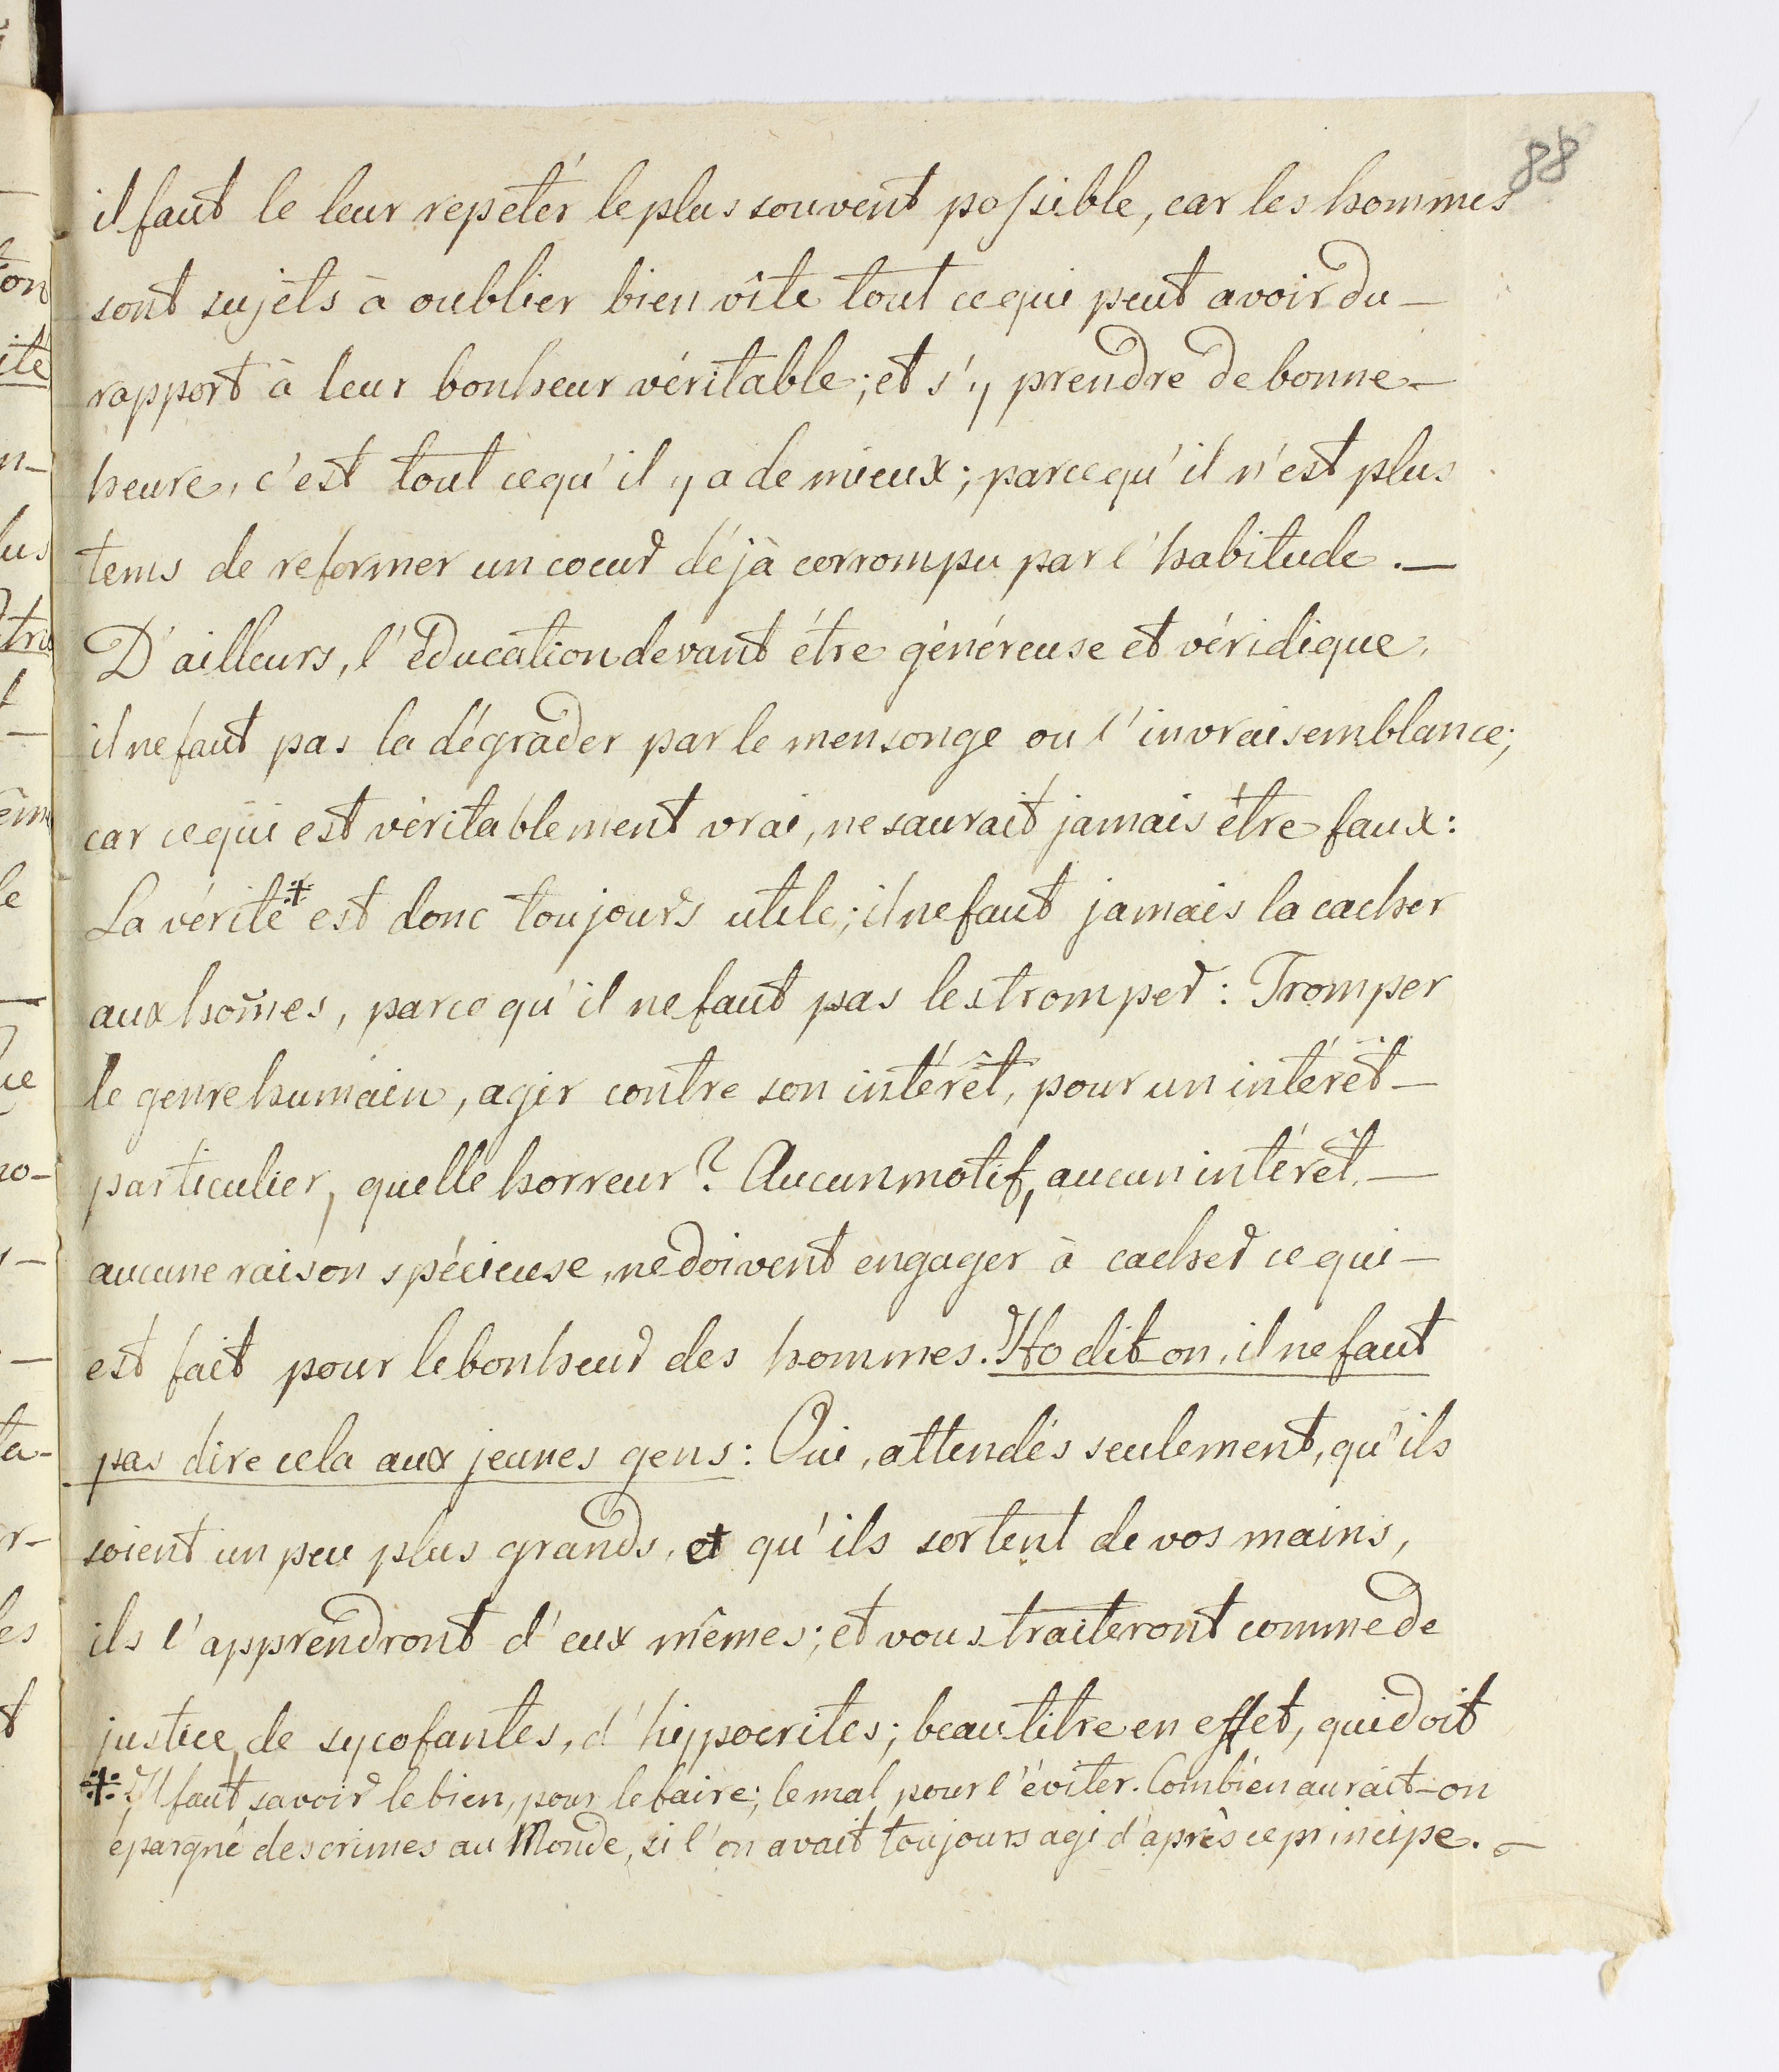 88
il faut le leur repetér le plus souvent possible, car les hommes
sont sujèts à oublier bien vîte tout ce qui peut avoir du —
rapport à leur bonheur véritable; et s'y prendre de bonne —
heure, c'est tout ce qu'il y a de mieux; parce qu'il n'est plus
tems de reformer un coeur déjà corrompu par l'habitude. —
D'ailleurs, l'éducation devant étre généreuse et véridique,
il ne faut pas la dégrader par le mensonge ou l'invraisemblance;
car ce qui est véritablement vrai, ne saurait jamais étre faux:
La vérité* est donc toujours utile; il ne faut jamais la cacher
aux hom̃es, parce qu'il ne faut pas les tromper: Tromper
le genre humain, agir contre son intérêt, pour un intérêt —
particulier, quelle horreur? Aucun motif, aucun intérêt, —
aucune raison spécieuse, ne doivent engager à cacher ce qui —
est fait pour le bonheur des hommes. Ho dit-on, il ne faut
pas dire cela aux jeunes gens: Oui, attendés seulement, qu'ils
soient un peu plus grands, et qu'ils sortent de vos mains,
ils l'apprendront d'eux mêmes; et vous traiteront comme de
justice, de sycofantes, d'hippocrites; beau titre en effet, qui doit
* Il faut savoir le bien, pour le faire; le mal pour l'éviter. Combien aurait-on
épargné des crimes au Monde, si l'on avait toujours agi d'après ce principe. —